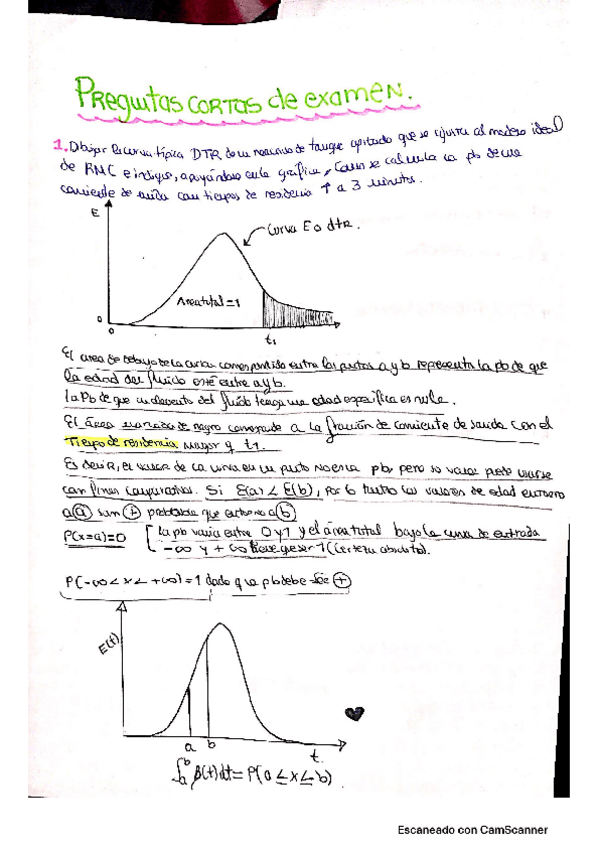 PREGUNTAS CORTAS de examen.
1. Dibujar la curva típica DTR de un reactor de tanque agitado que se ajusta al modelo ideal
de RMC e indique, apoyándose en la gráfica, como se calcula la pb de una
corriente de salida con tiempos de residencia ↑ a 3 minutos.
E
Curva E o dtR.
Area total = 1
0
0
t₁
El area de debajo de la curva comprendido entre los puntos a y b representa la pb de que
la edad del fluido esté entre a y b.
la Pb de que un elemento del fluido tenga una edad específica es nula.
El área marcada de negro corresponde a la fracción de corriente de salida con el
Tiempo de residencia mayor q t₁.
Es decir, el valor de la curva en un punto no es la pb, pero su valor puede usarse
con fines comparativos. Si E(a) < E(b), por lo tanto los valores de edad entorno
a (a) son probable que entorno a (b)
P(x=a)=0
la pb varía entre 0 y 1 y el área total bajo la curva de entrada
-∞ y +∞ tiene que ser 1 (certeza absoluta).
P(-∞ < x < +∞) = 1 dado que pb debe ser (+)
E(t)
a b
t.
∫ₐᵇ (t)dt = P(a ≤ x ≤ b)
Escaneado con CamScanner